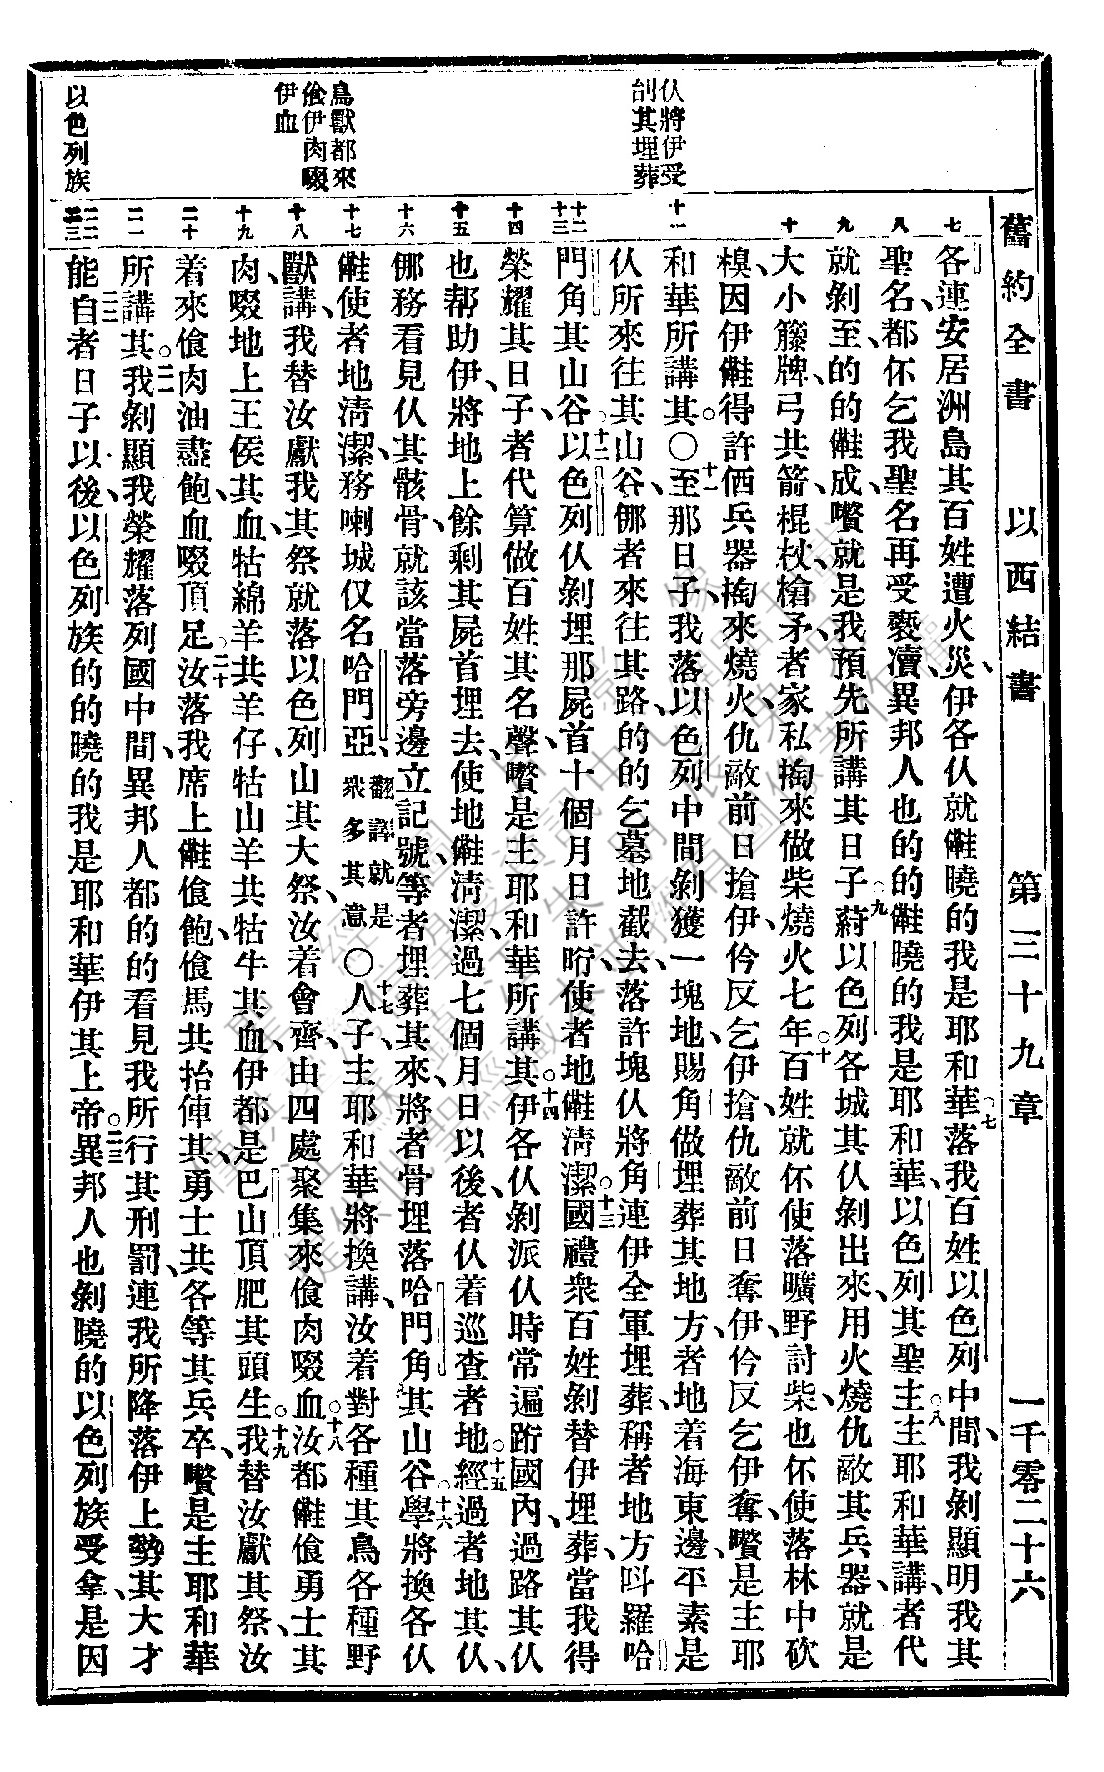 舊約全書 以西結書 第三十九章 一千零二十六
仈將伊受
刣其埋葬
鳥獸都來
飧伊肉啜
伊血
以色列族
七
八
九
十
十一
十二
十三
十四
十五
十六
十七
十八
十九
二十
二一
二二
二三
各、連安居洲島其百姓遭火災、伊各仈就㑚曉的我是耶和華○七落我百姓以色列中間、我剝顯明我其
聖名、都伓乞我聖名再受褻凟、異邦人也的的㑚曉的我是耶和華、以色列其聖主○八主耶和華講、者代
就剝至、的的㑚成、囋就是我預先所講其日子○九蒔以色列各城其仈剝出來、用火燒仇敵其兵器、就是
大小籐牌、弓共箭、棍杖、槍矛、者家私掏來做柴燒火七年○十百姓就伓使落曠野討柴、也伓使落林中砍
模、因伊㑚得許価兵器掏來燒火、仇敵前日搶伊、仱反乞伊搶、仇敵前日奪伊、仱反乞伊奪、囋是主耶
和華所講其○○十一至那日子、我落以色列中間剝獲一塊地、賜角做埋葬其地方、者地着海東邊、平素是
仈所來往其山谷、㑚者來往其路的的乞墓地截去、落許塊仈將角連伊全軍埋葬、稱者地方叫羅哈
門角其山谷○十二以色列仈剝埋那屍首十個月日許昕、使者地㑚淸潔○十三國禮衆百姓剝替伊埋葬、當我得
榮耀其日子、者代算做百姓其名聲、囋是主耶和華所講其○十四伊各仈剝派仈時常遍跨國內、過路其仈、
也帮助伊、將地上餘剩其屍首埋去、使地㑚淸潔、過七個月日以後、者仈着巡查者地○十五經過者地其仈、
㑚務看見仈其骸骨、就該當落旁邊立記號、等者埋葬其來、將者骨埋落哈門角其山谷○十六學將換各仈
㑚使者地淸潔、務喇城仅名哈門亞、翻譯就是衆多其意○○十七人子、主耶和華將換講、汝着對各種其鳥各種野
獸講、我替汝獻我其祭、就落以色列山其大祭、汝着會齊、由四處聚集來飧肉啜血○十八汝都㑚飧勇士其
肉、啜地上王侯其血、牯綿羊共羊仔、牯山羊共牯牛其血、伊都是巴山頂肥其頭生○十九我替汝獻其祭、汝
着來飧肉油盡飽、血啜頂足○二十汝落我席上㑚飧飽、飧馬共抬俥其、勇士共各等其兵卒、囋是主耶和華
所講其○二一我剝顯我榮耀落列國中間、異邦人都的的看見我所行其刑罰、連我所降落伊上勢其大才
能○二二自者日子以後、以色列族的的曉的我是耶和華伊其上帝○二三異邦人也剝曉的以色列族受拿、是因